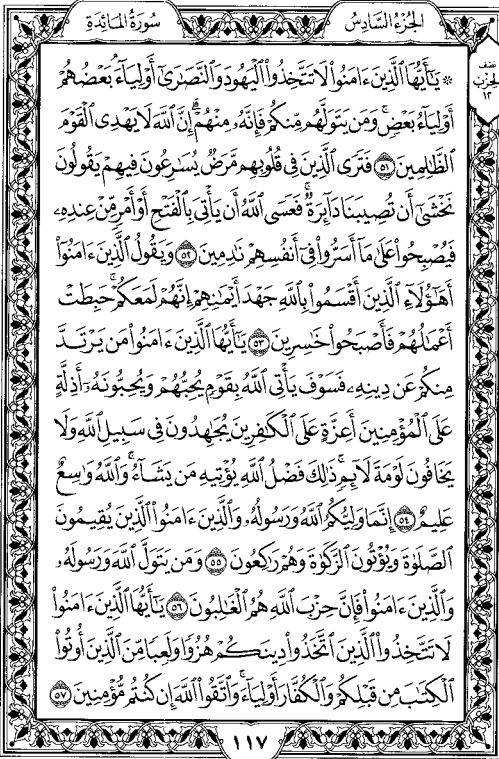 سُورَةُ المَائِدَةِ
الجُزْءُ السَّادِسُ
نصف
الحِزْب
١٢
۞ يَٰٓأَيُّهَا ٱلَّذِينَ ءَامَنُواْ لَا تَتَّخِذُواْ ٱلۡيَهُودَ وَٱلنَّصَٰرَىٰٓ أَوۡلِيَآءَۘ بَعۡضُهُمۡ
أَوۡلِيَآءُ بَعۡضٖۚ وَمَن يَتَوَلَّهُم مِّنكُمۡ فَإِنَّهُۥ مِنۡهُمۡۗ إِنَّ ٱللَّهَ لَا يَهۡدِي ٱلۡقَوۡمَ
ٱلظَّٰلِمِينَ ٥١ فَتَرَى ٱلَّذِينَ فِي قُلُوبِهِم مَّرَضٞ يُسَٰرِعُونَ فِيهِمۡ يَقُولُونَ
نَخۡشَىٰٓ أَن تُصِيبَنَا دَآئِرَةٞۚ فَعَسَى ٱللَّهُ أَن يَأۡتِيَ بِٱلۡفَتۡحِ أَوۡ أَمۡرٖ مِّنۡ عِندِهِۦ
فَيُصۡبِحُواْ عَلَىٰ مَآ أَسَرُّواْ فِيٓ أَنفُسِهِمۡ نَٰدِمِينَ ٥٢ وَيَقُولُ ٱلَّذِينَ ءَامَنُوٓاْ
أَهَٰٓؤُلَآءِ ٱلَّذِينَ أَقۡسَمُواْ بِٱللَّهِ جَهۡدَ أَيۡمَٰنِهِمۡ إِنَّهُمۡ لَمَعَكُمۡۚ حَبِطَتۡ
أَعۡمَٰلُهُمۡ فَأَصۡبَحُواْ خَٰسِرِينَ ٥٣ يَٰٓأَيُّهَا ٱلَّذِينَ ءَامَنُواْ مَن يَرۡتَدَّ
مِنكُمۡ عَن دِينِهِۦ فَسَوۡفَ يَأۡتِي ٱللَّهُ بِقَوۡمٖ يُحِبُّهُمۡ وَيُحِبُّونَهُۥٓ أَذِلَّةٍ
عَلَى ٱلۡمُؤۡمِنِينَ أَعِزَّةٍ عَلَى ٱلۡكَٰفِرِينَ يُجَٰهِدُونَ فِي سَبِيلِ ٱللَّهِ وَلَا
يَخَافُونَ لَوۡمَةَ لَآئِمٖۚ ذَٰلِكَ فَضۡلُ ٱللَّهِ يُؤۡتِيهِ مَن يَشَآءُۚ وَٱللَّهُ وَٰسِعٌ
عَلِيمٌ ٥٤ إِنَّمَا وَلِيُّكُمُ ٱللَّهُ وَرَسُولُهُۥ وَٱلَّذِينَ ءَامَنُواْ ٱلَّذِينَ يُقِيمُونَ
ٱلصَّلَوٰةَ وَيُؤۡتُونَ ٱلزَّكَوٰةَ وَهُمۡ رَٰكِعُونَ ٥٥ وَمَن يَتَوَلَّ ٱللَّهَ وَرَسُولَهُۥ
وَٱلَّذِينَ ءَامَنُواْ فَإِنَّ حِزۡبَ ٱللَّهِ هُمُ ٱلۡغَٰلِبُونَ ٥٦ يَٰٓأَيُّهَا ٱلَّذِينَ ءَامَنُواْ
لَا تَتَّخِذُواْ ٱلَّذِينَ ٱتَّخَذُواْ دِينَكُمۡ هُزُوٗا وَلَعِبٗا مِّنَ ٱلَّذِينَ أُوتُواْ
ٱلۡكِتَٰبَ مِن قَبۡلِكُمۡ وَٱلۡكُفَّارَ أَوۡلِيَآءَۚ وَٱتَّقُواْ ٱللَّهَ إِن كُنتُم مُّؤۡمِنِينَ ٥٧
١١٧